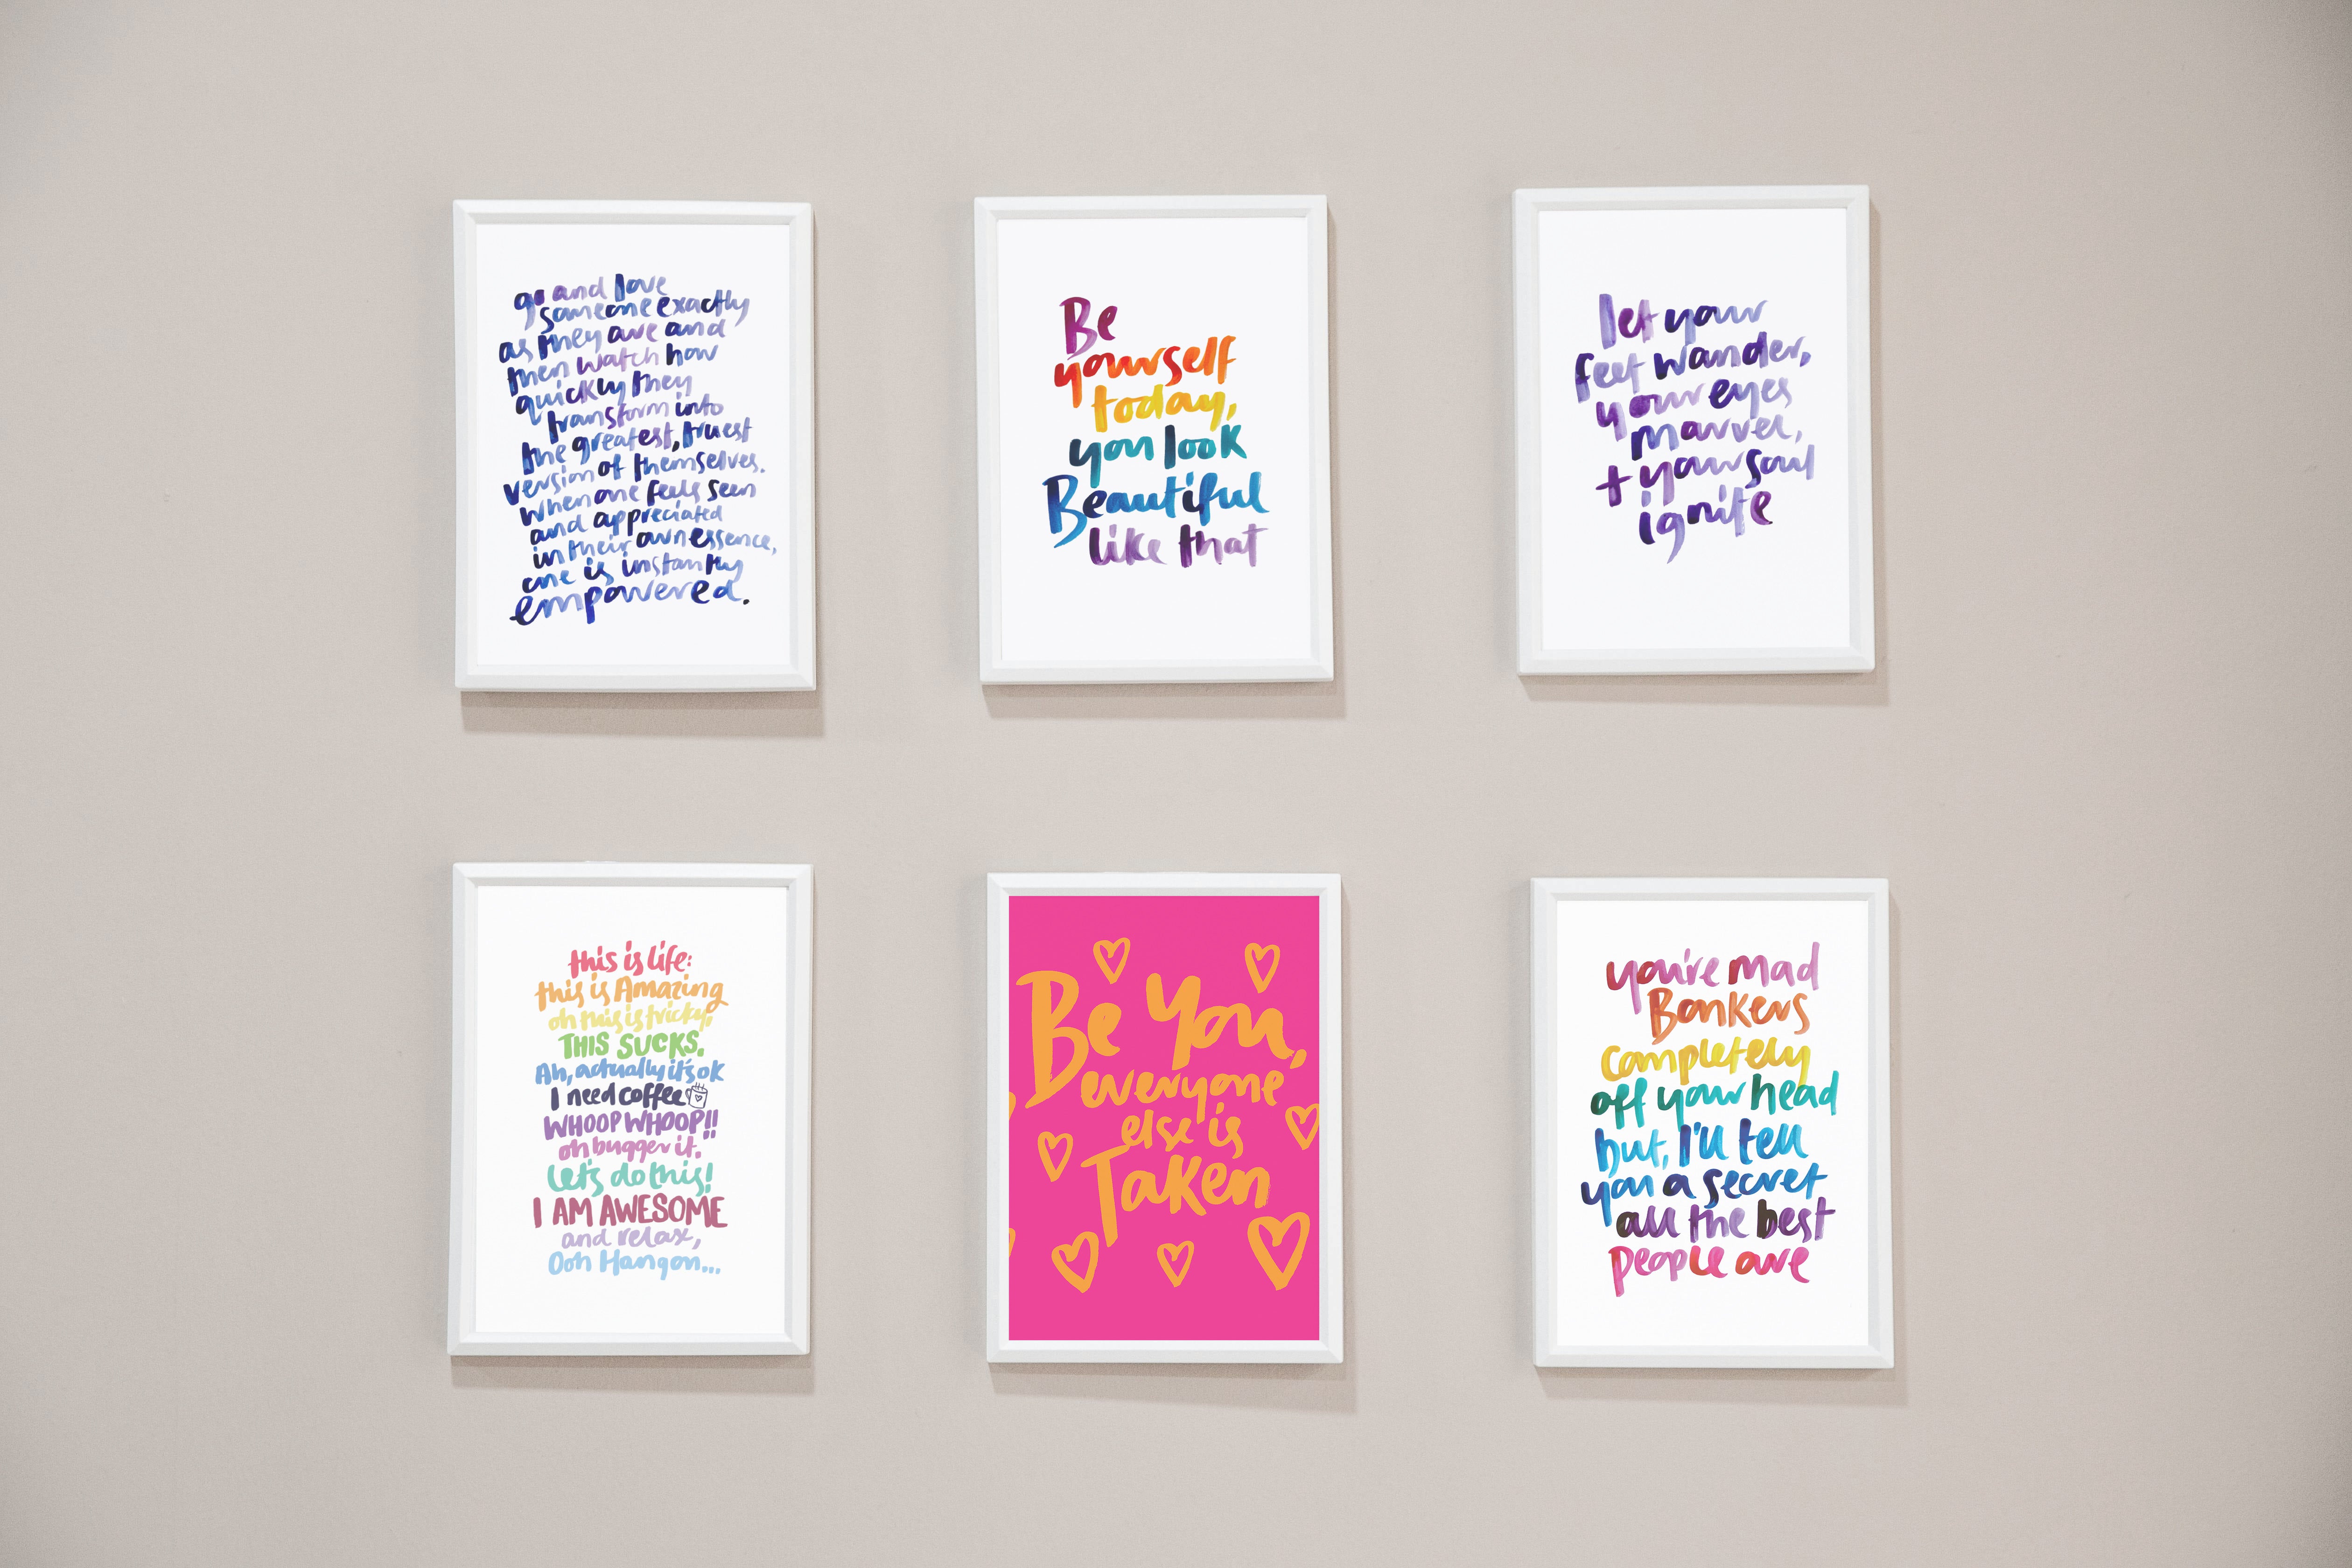 go and love
someone exactly
as they are and
then watch how
quickly they
transform into
the greatest, truest
version of themselves.
When one feels seen
and appreciated
in their own essence,
one is instantly
empowered.
Be
yourself
today,
you look
Beautiful
like that
let your
feet wander,
your eyes
marvel,
+ your soul
ignite
this is life:
this is Amazing
oh this is tricky,
THIS SUCKS.
Ah, actually it's ok
I need coffee
WHOOP WHOOP!!
oh bugger it.
Let's do this!
I AM AWESOME
and relax,
Ooh Hang on...
Be You,
everyone
else is
Taken
you're mad
Bonkers
completely
off your head
but, I'll tell
you a secret
all the best
people are